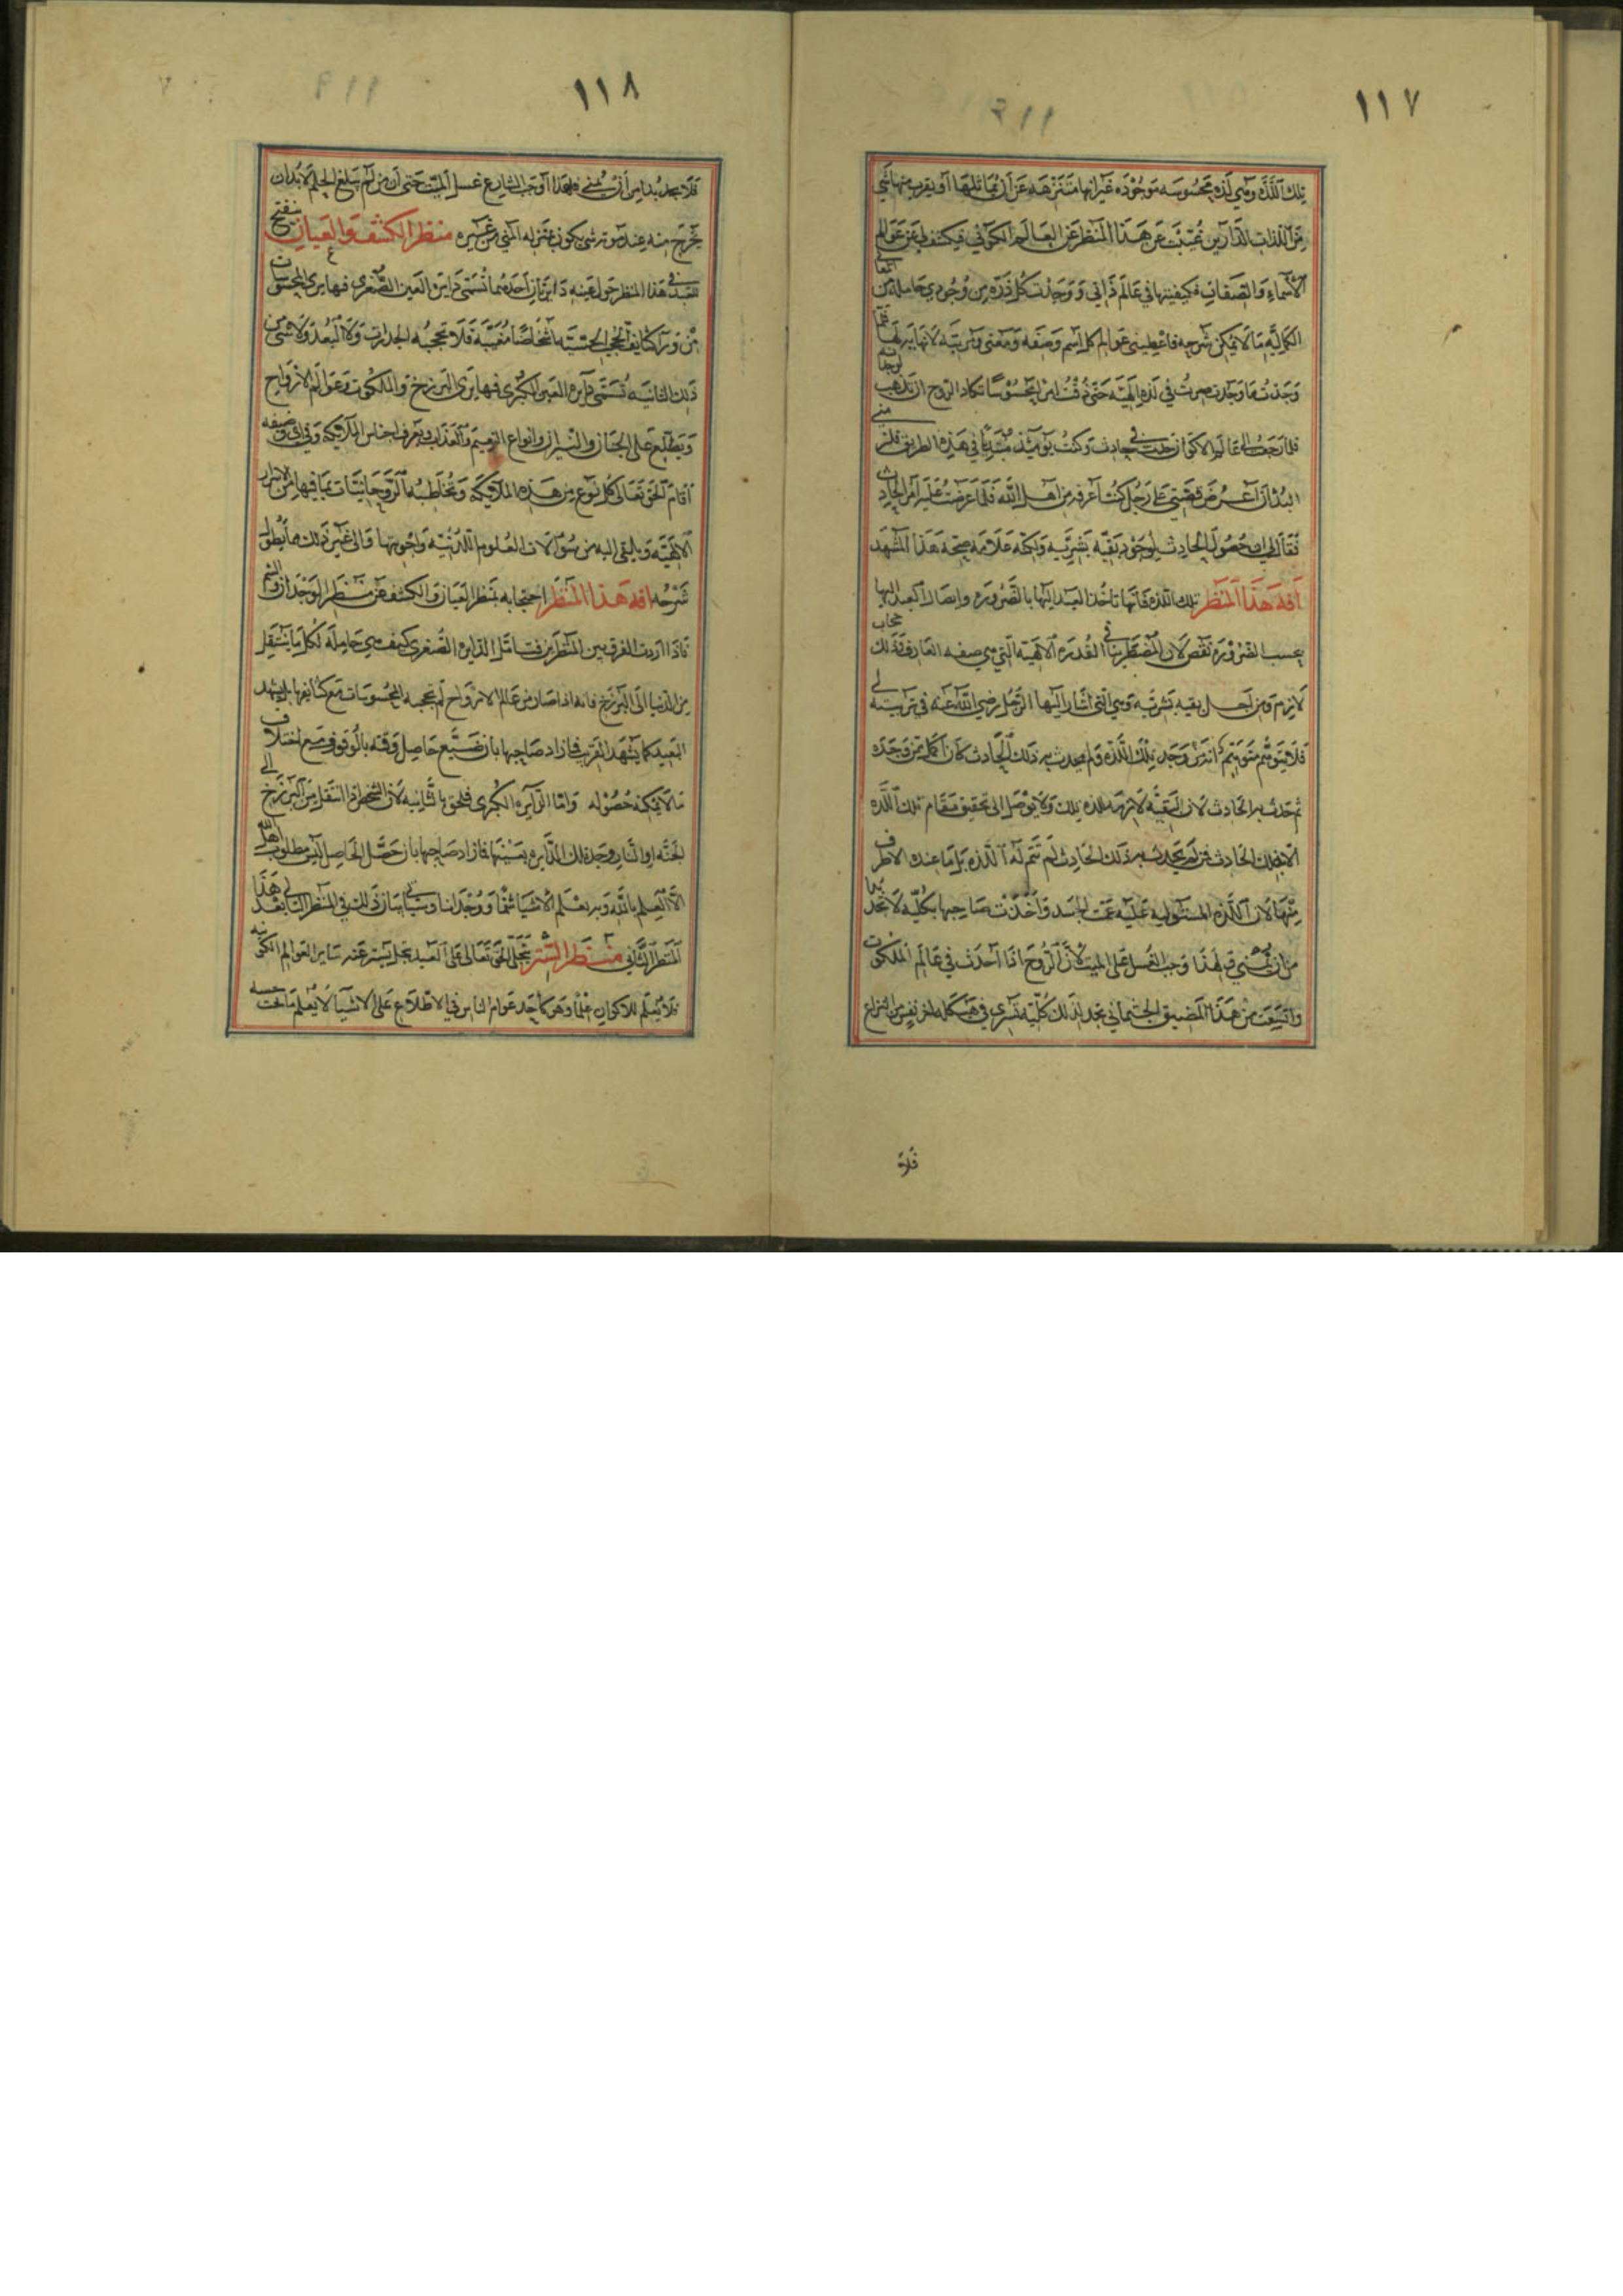 ١١٧
تلك اللذة وهي لذة محسوسة موجودة غير انها متنزهة عن ان يماثلها او يقرب منها شي
من اللذات الدارين غيبت عن هذا المنظر عن العالم الكوني فيكشف لي عن عوالم
الاسماء والصفات فكيفيتها في عالم ذاتي ووجدت كل ذرة من وجودي حاملة من المعاني
الكمالية ما لا يمكن شرحه فاعطيني عوالم كل اسم وصفة ومعنى ومرتبة لا نهاية لها فلما
وجدت ما وجدت صرت في لذة الهية حتى ذقت امرا محسوسا تكاد الروح ان تذهب
فلما رجعت الى عالم الاكوان حدث في حادث وكنت يومئذ مبتديا في هذه الطريق فلم
البث ان اعرض قصتي على رجل كنت اعرفه من اهل الله فلما عرضت عليه امر الحادث
فقال لي ان حصول الحادث لوجود بقية بشرية ولكنه علامة صحة هذا المشهد
افة هذا المنظر تلك اللذة فانها تاخذ العبد اليها بالضرورة وايصال العبد اليها
بحسب الضرورة نقص لان المضطر ينافي القدرة الالهية التي هي صفة العارف فذلك حجاب
لازم ومن اجل بقية بشرية وهي التي اشار اليها الرجل رضي الله عنه في تربيته لي
فلا يتوهم متوهم ان من وجد تلك اللذة ولم يحدث به ذلك الحادث كان اكمل ممن وجده
ثم حدث به الحادث لان البقية لازمة لذة تلك ولا يوصل الى تحقيق مقام تلك اللذة
الا بذلك الحادث فمن لم يحدث به ذلك الحادث لم تتم له اللذة بل ما عنده الا طرف
منها لان اللذة المستولية عليه عمت الجسد واخذت صاحبها بكلية لا تجد بدا
من ان يمني فلهذا وجب الغسل على الميت لان الروح اذا اخذت في عالم الملكوت
واتسعت من هذا المضيق الجثماني تجد لذلك كلية تسري في هيكله لمن نفس النزاع
فلا
١١٨
فلا يجد بدا من ان يمني فلهذا اوجب الشارع غسل الميت حتى ان من لم يبلغ الحلم لا بد ان
يخرج منه عند موته شي يكون بمنزلة المني من غيره منظر الكشف والعيان ينفتح
للعبد في هذا المنظر حول عينه دايرتان احدهما تسمى دايرة العين الصغرى فيها يرى المحسوسات
من وراء كثايف الحجب الحسية اشخاصا مغيبة فلا تحجبه الجدرات ولا البعد ولا شي من
ذلك الثانية تسمى دايرة العين الكبرى فيها يرى البرزخ والملكوت وعوالم الارواح
ويطلع على الجنان والنيران وانواع النعيم والعذاب ويعرف اجناس الملائكة وفي اي وصيفة
اقام الحق تعالى كل نوع من هذه الملائكة وتخاطبه الروحانيات بما فيها من الاسرار
الالهية ويلقى اليه من سؤالات العلوم اللدنية واجوبتها والى غير ذلك ما يطول
شرحه افة هذا المنظر احتجابه بمنظر العيان والكشف عن منظر الوجدان والشم
فاذا اردت الفرق بين المنظرين فتامل الدايرة الصغرى كيف هي حاملة لكل ما ينتقل
من الدنيا الى البرزخ فانه اذا صار من عالم الارواح لم تحجبه المحسوسات مع كثايفها بل يشهد
البعيد كما يشهد القريب فاراد صاحبها بان ضيع حاصل وقته بالوقوف مع اختلاف
ما لا يمكنه حصوله واما الدايرة الكبرى فملحق بالثانية لان الشخص اذا انتقل من البرزخ الى
الجنة او النار وجد تلك الدايرة بعينها فاراد صاحبها بان حصل الحاصل ليس مطلوب اهل الله
الا العلم بالله وبه يعلم الاشيا شما ووجدانا وسياتي بيان ذلك في المنظر التالي بعد هذا
المنظر الثاني منظر الستر يتجلى الحق تعالى على العبد بتجل يستر عنه ساير العوالم الكونية
فلا يعلم للاكوان علما وهو كاحد عوام الناس في الاطلاع على الاشيا لا يعلم ما تحت حسه